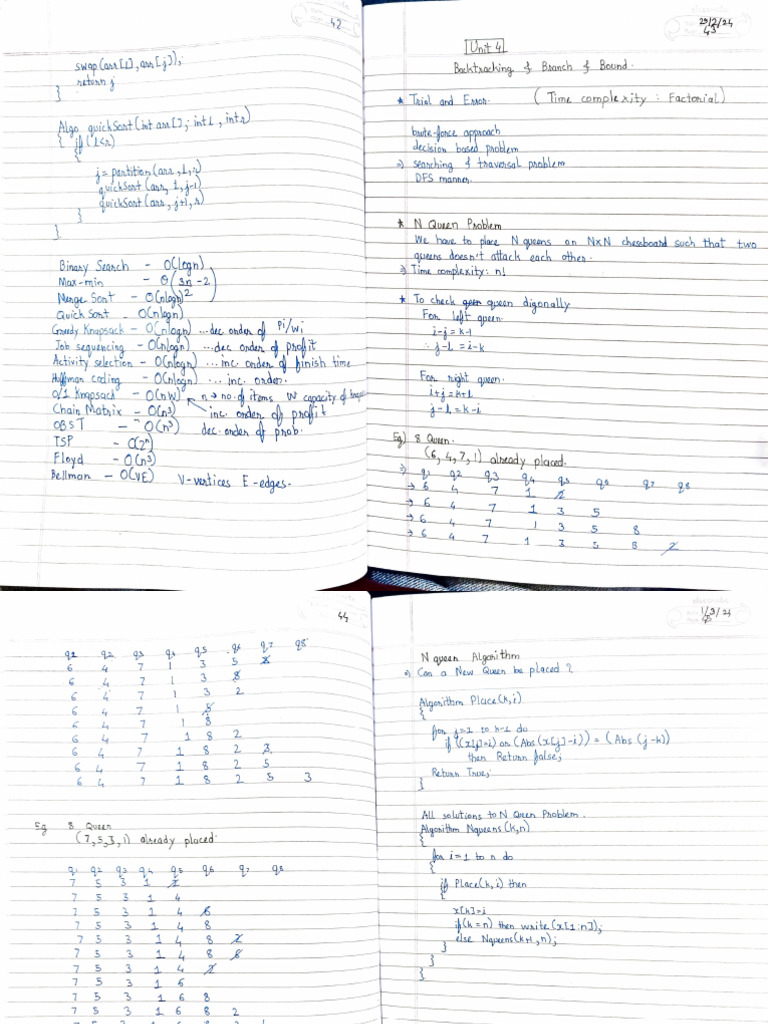 42
swap(arr[l], arr[j]);
return j
}
Algo quickSort(int arr[], int l, int r)
{ if (l<r)
{
j = partition(arr, l, r)
quickSort(arr, l, j-1)
quickSort(arr, j+1, r)
}
}
Binary Search - O(logn)
Max-min - O(3n/2 - 2)
Merge Sort - O(nlogn)
Quick Sort - O(nlogn)
Greedy Knapsack - O(nlogn) ...dec order of Pi/wi
Job sequencing - O(nlogn) ...dec order of profit
Activity selection - O(nlogn) ... inc. order of finish time
Huffman coding - O(nlogn) ... inc. order.
0/1 Knapsack - O(nW) n → no. of items W capacity of
Chain Matrix - O(n³) inc. order of profit
OBST - O(n³) dec. order of prob.
TSP - O(2ⁿ)
Floyd - O(n³)
Bellman - O(VE) V-vertices E-edges.
29/2/24
43
Unit 4
Backtracking & Branch & Bound.
* Trial and Error. (Time complexity : Factorial)
brute-force approach
decision based problem
⇒ searching & traversal problem
DFS manner.
* N Queen Problem
We have to place N queens on NxN chessboard such that two
queens doesn't attack each other.
⇒ Time complexity: n!
* To check queen digonally
For left queen
i-j = k-l
∴ j-l = i-k
For right queen
i+j = k+l
j-l = k-i
Eg) 8 Queen.
(6, 4, 7, 1) already placed.
⇒ q1 q2 q3 q4 q5 q6 q7 q8
→ 6 4 7 1 2
→ 6 4 7 1 3 5
→ 6 4 7 1 3 5 8
→ 6 4 7 1 3 5 8 2
44
q1 q2 q3 q4 q5 q6 q7 q8
6 4 7 1 3 5 8
6 4 7 1 3 8
6 4 7 1 3 2
6 4 7 1 5
6 4 7 1 8
6 4 7 1 8 2
6 4 7 1 8 2 3
6 4 7 1 8 2 5
6 4 7 1 8 2 5 3
Eg 8 Queen
(7, 5, 3, 1) already placed.
q1 q2 q3 q4 q5 q6 q7 q8
7 5 3 1 2
7 5 3 1 4
7 5 3 1 4 6
7 5 3 1 4 8
7 5 3 1 4 8 2
7 5 3 1 4 8 6
7 5 3 1 4 2
7 5 3 1 6
7 5 3 1 6 8
7 5 3 1 6 8 2
1/3/24
45
N queen Algorithm
⇒ Can a New Queen be placed ?
Algorithm Place(k,i)
{
for j=1 to k-1 do
if ((x[j]=i) or (Abs(x[j]-i)) = (Abs (j-k))
then Return false;
Return True;
}
All solutions to N Queen Problem.
Algorithm Nqueens(k,n)
{
for i=1 to n do
{
if Place(k,i) then
{
x[k]=i
if(k=n) then write (x[1:n]);
else Nqueens(k+1,n);
}
}
}